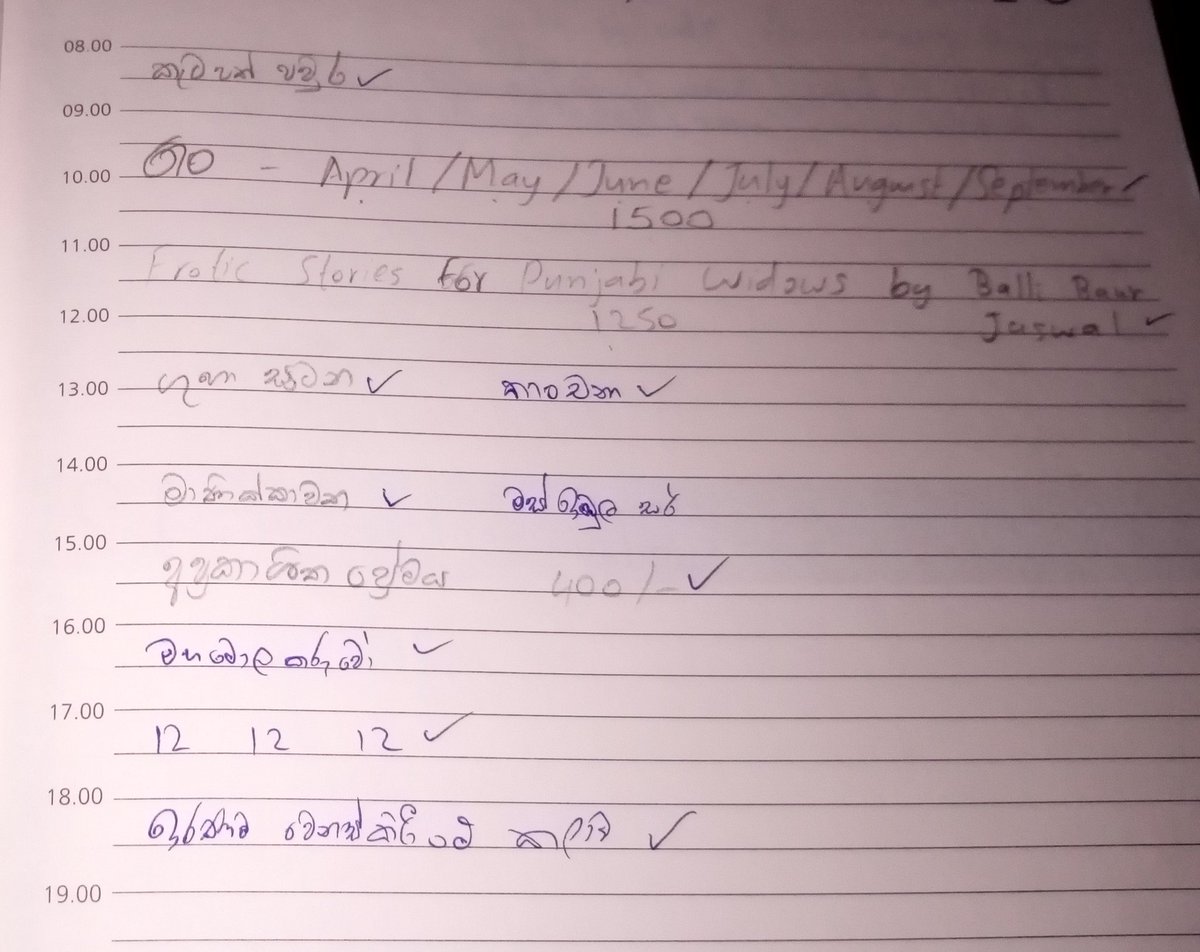 08.00
කැටපත් පවුර ✓
09.00
10.00 රට - April / May / June / July / August / September ✓
1500
11.00
Erotic Stories for Punjabi Widows by Balli Kaur
12.00 1250 Jaswal ✓
13.00 ගුහා සටන ✓ කාංචන ✓
14.00
මාණික්කාවත ✓ මස් ඇඹුල සරි
15.00
අප්‍රකාශිත ප්‍රේමය 400/- ✓
16.00
මහබෝල කරුවෝ ✓
17.00
12 12 12 ✓
18.00
ඉරණම වෙනස්කිරීමේ කලාව ✓
19.00